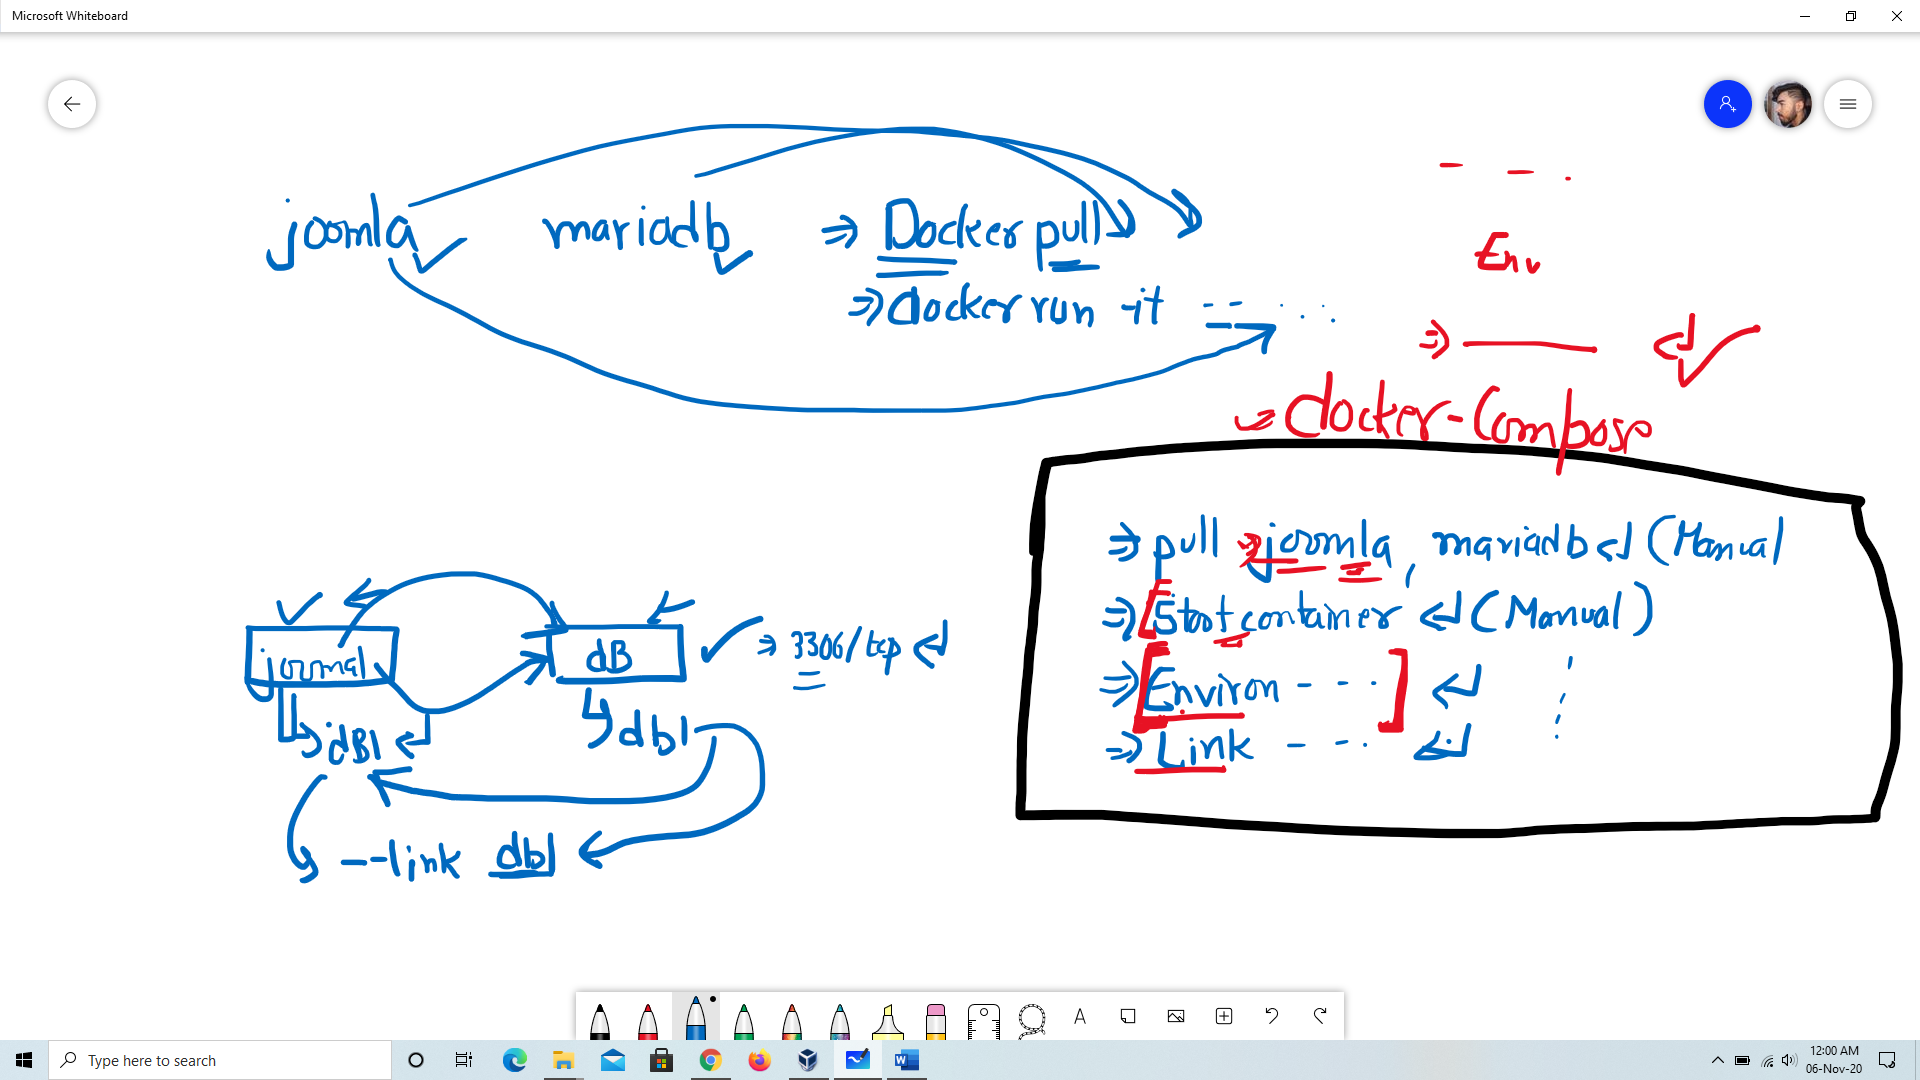 Microsoft Whiteboard
joomla mariadb ⇒ Docker pull
⇒ docker run -it -- ...
Env
⇒
docker-Compose
⇒ pull ⇒ joomla, mariadb ↵ (Manual
⇒ [Start container ↵ (Manual)
⇒ [Environ - - - ] ↵
⇒ Link - - - ↵
joomal
dB ⇒ 3306/tcp ↵
dB1
db1
--link db1
Type here to search
12:00 AM
06-Nov-20